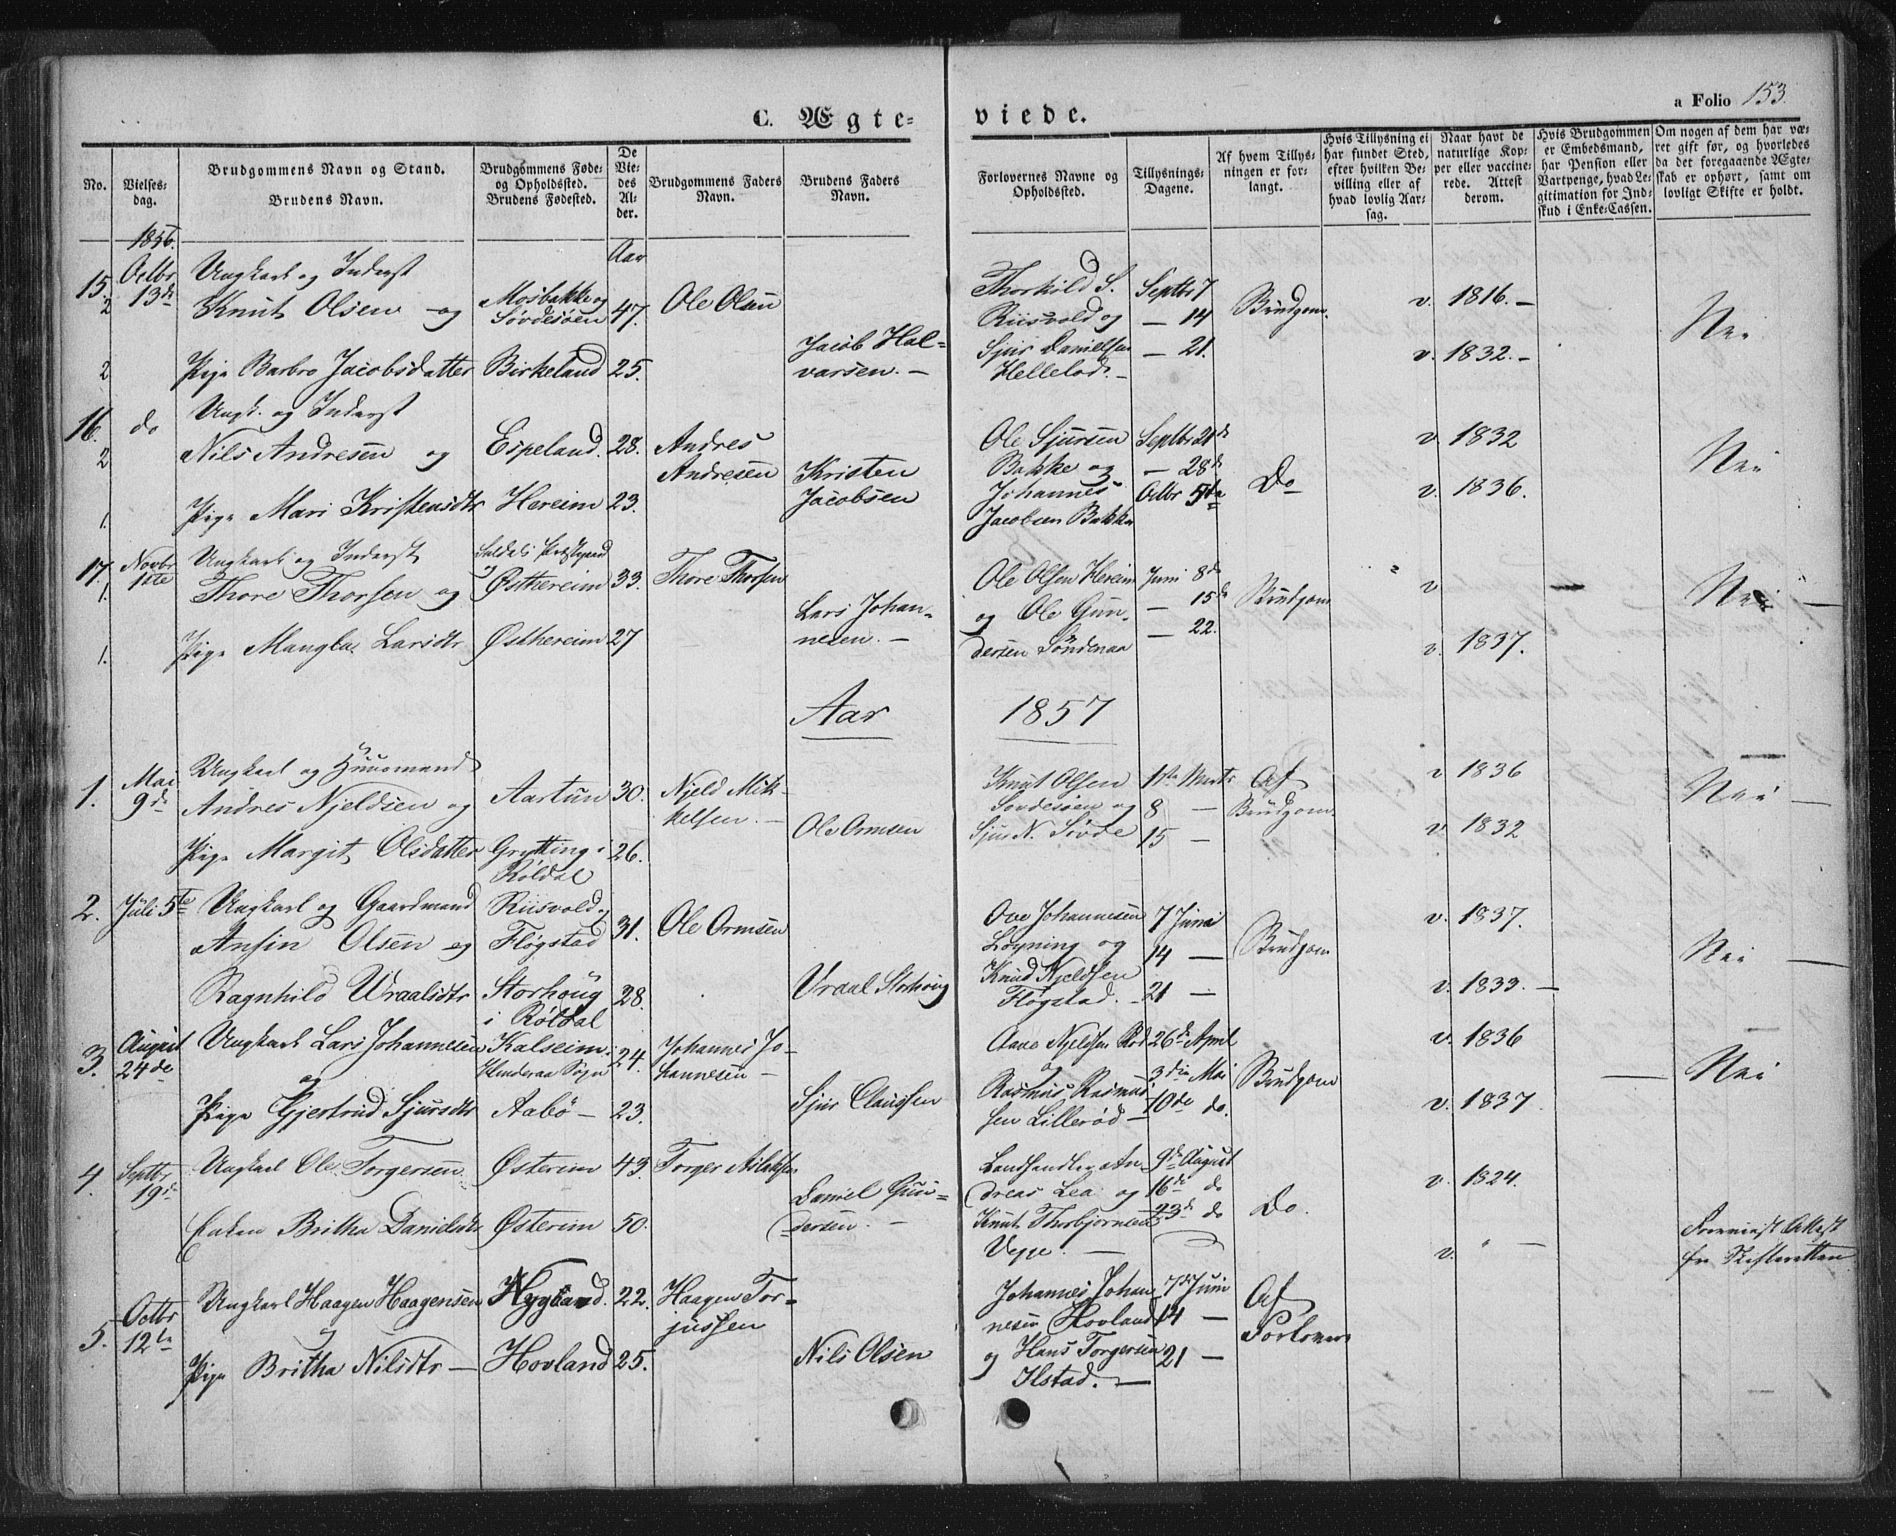 C. Ægteviede.
a Folio 153.
No.
Vielsesdag.
Brudgommens Navn og Stand.
Brudens Navn.
Brudgommens Føde- og Opholdssted.
Brudens Fødested.
De Viedes Alder.
Brudgommens Faders Navn.
Brudens Faders Navn.
Forlovernes Navne og Opholdssted.
Tillysnings-Dagene.
Af hvem Tillysningen er forlangt.
Hvis Tillysning ei har fundet Sted, efter hvilken Bevilling eller af hvad lovlig Aarsag.
Naar havt de naturlige Kopper eller vaccinerede. Attest derom.
Hvis Brudgommen er Embedsmand, har Pension eller Vartpenge, hvad Legitimation for Indskud i Enke-Cassen.
Om nogen af dem har været gift før, og hvorledes da det foregaaende Ægteskab er ophørt, samt om lovligt Skifte er holdt.
1856.
Aar
15. Octbr 13de
2
Ungkarl og Inderst
Knut Olsen og
Mosbakke og Søvdesøen 47. Ole Olsen
2
Pige Barbro Jacobsdatter Birkeland 25.
Jacob Halvarsen. —
Thorkild S. Riisvold og Sjur Danielsen Hellelod. —
Septbr 7
— 14
— 21.
Brudgom.
v. 1816. —
v. 1832. —
Nei
16. do
2
Ungk. og Inderst
Nils Andresen og Espeland. 28. Andres Andresen
1.
Pige Mari Kristensdtr Hereim 23.
Kristen Jacobsen
Ole Sjursen Bakke og Johannes Jacobsen Bakke
Septbr 21de
— 28de
Octbr 5te
Do
v. 1832
v. 1836.
Nei
17. Novbr 1ste
1.
Ungkarl og Inderst
Thore Thorsen og
Østhereim 33. Thore Thorsen
1.
Pige Mangla Larsdtr Østhereim 27
Lars Johannesen. —
Ole Olsen Hereim og Ole Gundersen Søndenaa
Juni 8de
— 15de
— 22.
Brudgom
v
v. 1837.
Nei —
Aar 1857
1. Mai 9de
Ungkarl og Huusmand
Andres Njeldsen og Aartun 30. Njeld Mikkelsen. —
Pige Margit Olsdatter Grytting i Røldal 26.
Ole Ormsen
Knut Olsen Søvdesøen og Sjur N. Søvde
1ste Marts
8 —
15 —
Af Brudgom.
v 1836
v. 1832
Nei —
2. Juli 5te
Ungkarl og Gaardmand
Ansin Olsen og
Riisvold og Fløgstad 31. Ole Ormsen
Ragnhild Uraalsdtr Storhoug i Røldal 28.
Uraal Storhoug
Ove Johannesen Løyning og Knud Kjeldsen Fløgstad. —
7 Juni
14 —
21 —
Brudgom
v. 1837.
v. 1833. —
Nei —
3. August 24de
Ungkarl Lars Johannesen og
Kalseim. Sogn 24. Johannes Johannesen —
Pige Gjertrud Sjursdtr Aabø — 23.
Sjur Claussen
Aave Njeldsen Rød og Rasmus Rasmussen Lillerød —
26de April
3die Mai
10de do.
Brudgom
v. 1836
v. 1837.
— Nei
4. Septbr 19de
Ungkarl Ole Torgersen Østerim 43. Torger
Enken Britha Danielsdtr Østerim 50.
Daniel Gundersen. —
Landhandler Andreas Lea og Knut Thorbjørnsen
9de August
16de do
23de do
Do.
v. 1824.
v. " —
Forevist Attest fra Skifteretten
5. Octbr 12te
Ungkarl Haagen Haagensen Hygland. 22. Haagen Torjussen
og
Pige Britha Nilsdtr — Hovland 25.
Nils Olsen
Johannes Johannesen Hovland og Hans Torgersen Ilstad. —
7de Juni
14 —
21 —
Af Forlover